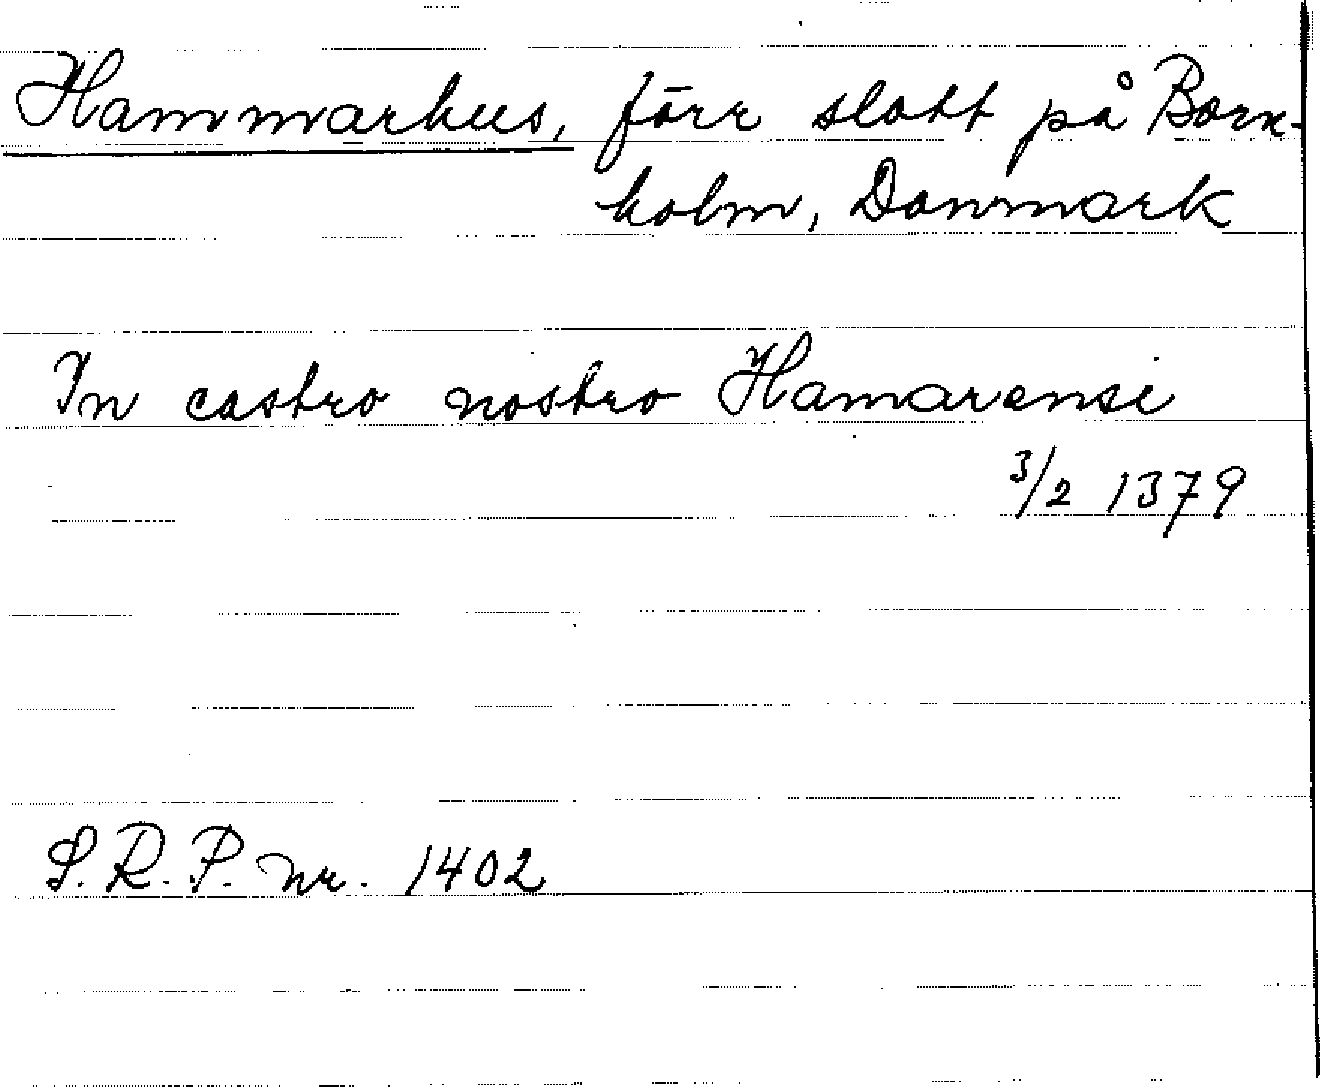 Hammarhus, förr slott på Born-
holm, Danmark
In castro nostro Hamarensi
3/2 1379
S.R.P. nr. 1402